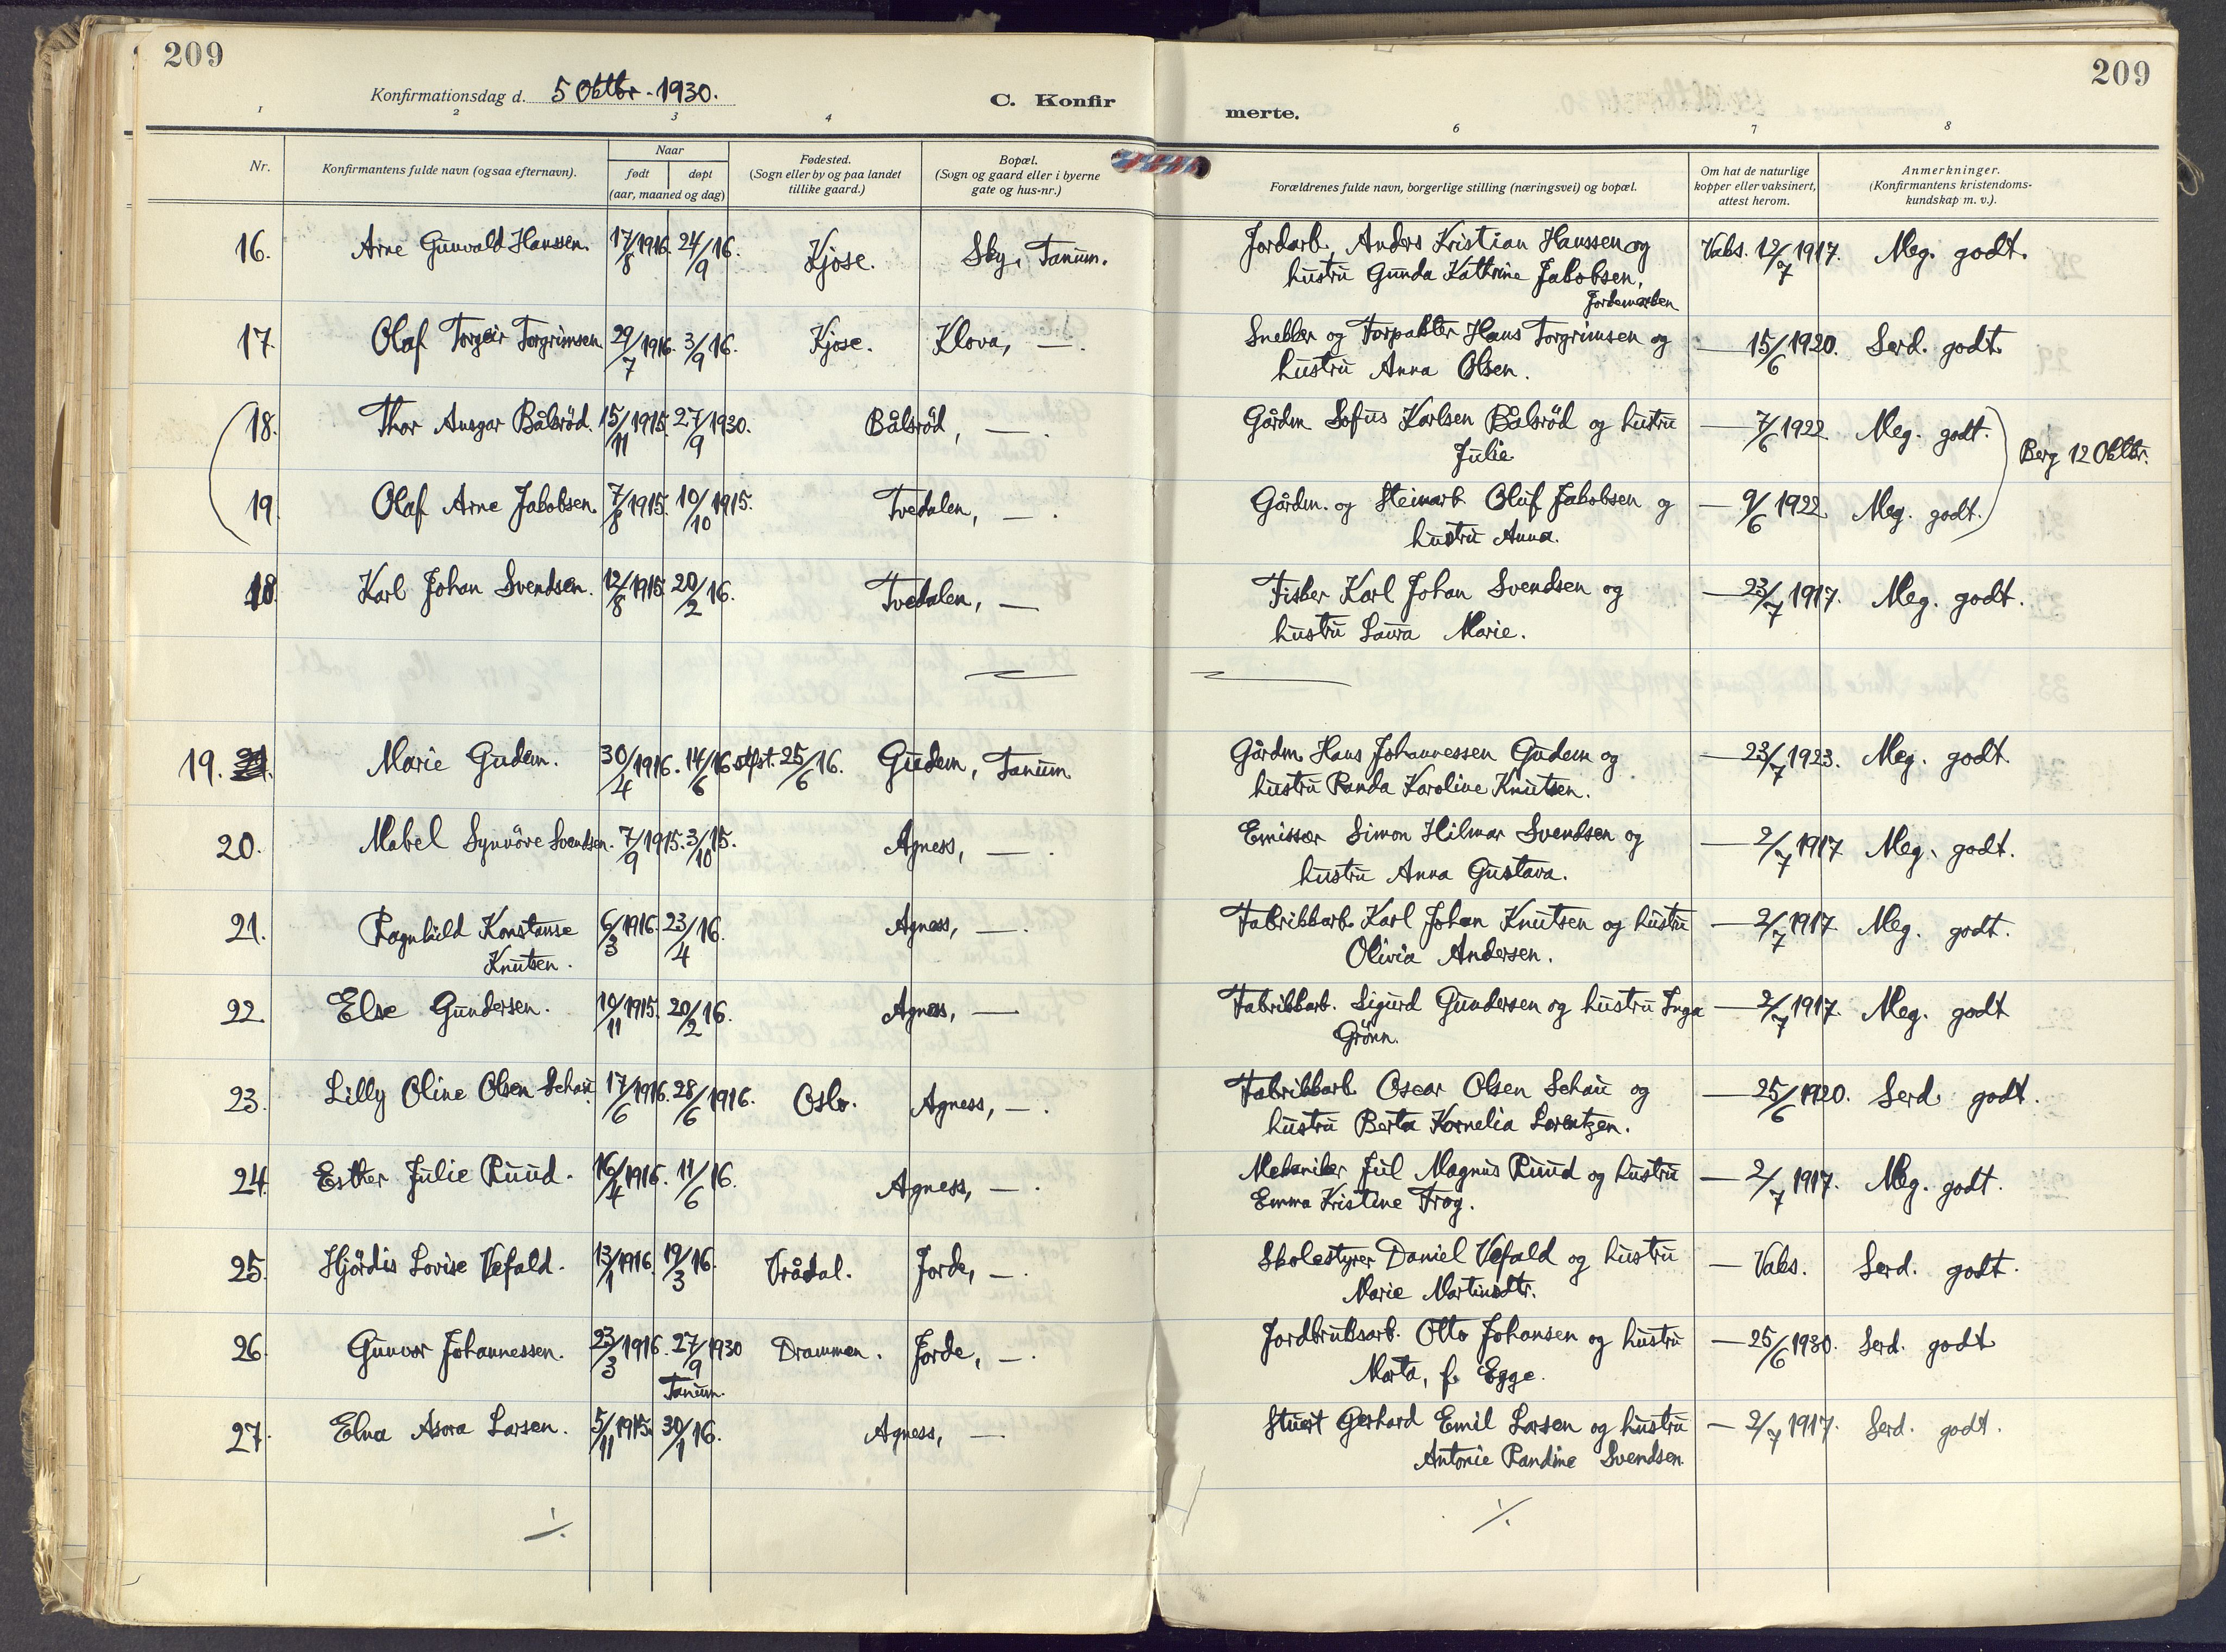 209
209
Konfirmationsdag d. 5 Oktbr - 1930.
C. Konfir
merte.
1 2 3 4 6 7 8
Nr.
Konfirmantens fulde navn (ogsaa efternavn).
Naar
født døpt
(aar, maaned og dag)
Fødested.
(Sogn eller by og paa landet
tillike gaard.)
Bopæl.
(Sogn og gaard eller i byerne
gate og hus-nr.)
Forældrenes fulde navn, borgerlige stilling (næringsvei) og bopæl.
Om hat de naturlige
kopper eller vaksinert,
attest herom.
Anmerkninger.
(Konfirmantens kristendoms-
kundskap m. v.).
16. Arne Gunvald Hanssen. 17/8 1916. 24/9 16. Kjose. Sky, Tanum. Jordarb. Anders Kristian Hanssen og Vaks. 12/7 1917. Meg. godt.
hustru Gunda Kathrine Jakobsen,
17. Olaf Torgeir Torgrimsen 29/7 1916. 3/9 16. Kjose. Klova, —. Snekker og Forpakter Hans Torgrimsen og — 15/6 1920. Serd. godt.
hustru Anna Olsen.
18. Thor Ansgar Bålsröd. 15/11 1915. 27/9 1930. Bålsröd, —. Gårdm Sofus Karlsen Bålsröd og hustru — 7/6 1922 Meg. godt.
Julie
Berg 12 Oktbr.
19. Olaf Arne Jakobsen. 7/8 1915. 10/10 1915. Tvedalen, —. Gårdm. og Steinarb. Oluf Jakobsen og — 9/6 1922 Meg. godt.
hustru Anna.
18. Karl Johan Svendsen. 12/8 1915. 20/2 16. Tvedalen, — Fisker Karl Johan Svendsen og — 23/7 1917. Meg. godt.
hustru Laura Marie.
19. Marie Gudem. 30/4 1916. 14/6 16 stfst. 25/6 16. Gudem, Tanum Gårdm. Hans Johannessen Gudem og — 23/7 1923. Meg. godt.
hustru Randa Karoline Knutsen.
20. Mabel Synnöve Svendsen. 7/9 1915. 3/10 15. Agness, —. Emissær Simon Hilmar Svendsen og — 2/7 1917 Meg. godt.
hustru Anna Gustava.
21. Ragnhild Konstanse 6/3 1916. 23/4 16. Agness, —. Fabrikkarb. Karl Johan Knutsen og hustru — 2/7 1917 Meg. godt.
Knutsen. Olivia Andersen.
22. Else Gundersen. 10/11 1915. 20/2 16. Agness, — Fabrikkarb. Sigurd Gundersen og hustru Inga — 2/7 1917. Meg. godt
Grönn.
23. Lilly Oline Olsen Schau 17/6 1916. 28/6 1916. Oslo. Agness, —. Fabrikkarb. Oscar Olsen Schau og — 25/6 1920. Serd. godt.
hustru Berta Kornelia Lorentzen.
24. Esther Julie Ruud. 16/4 1916. 11/6 16. Agness, —. Mekaniker Jul Magnus Ruud og hustru — 2/7 1917. Meg. godt.
Emma Kristine Frog.
25. Hjördis Lovise Vefald. 13/1 1916. 19/3 16. Vrådal. Jorde, —. Skolestyrer Daniel Vefald og hustru — Vaks. Serd. godt.
Marie Martinsdtr.
26. Gunvor Johannessen. 23/3 1916. 27/9 1930 Drammen. Jorde, —. Jordbruksarb. Otto Johansen og hustru — 25/6 1930. Serd. godt
Tanum. Marta, f. Egge.
27. Elna Asora Larsen. 5/11 1915. 30/1 16. Agness, — Stuert Gerhard Emil Larsen og hustru — 2/7 1917. Serd. godt.
Antonie Randine Svendsen.